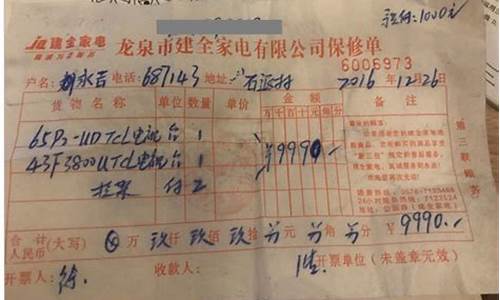 现付:1000元
建全家电
龙泉市建全家电有限公司保修单
6006973
户名: 永吉 电话: 687143 地址: 石 村 2016年12月26日
货物名称 单位 数量 单价 金额 备注
万 千 百 十 元 角 分
65P2-UD TCL电视 台 1
43F3800U TCL电视 台 1 ¥9990.-
挂架 付 2
第三联 账务
合计人民币 (大写) ⊗ 万 玖 仟 玖 佰 玖 拾 元 角 分 ¥9990.-
开票人: 徐. 收款人: 开票单位 (未盖章无效)